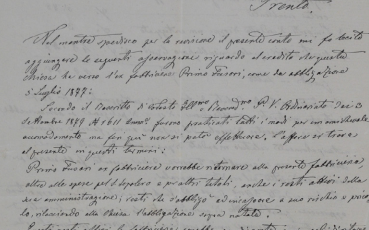 Trento.
Nel mentre spedisco per la revisione il presente conto mi fo lecito
aggiungere le seguenti osservazioni riguardo al credito di questa
Chiesa che verso l'ex fabbriciere Primo come da obbligazione
3 Luglio 1877:
Secondo il Decreto di codesto P. V. Ordinariato dei 3
Settembre 1879 furono praticati tutti i modi per un amichevole
accomodamento ma fin qui non si poté effettuare. L'affare si trova
al presente in questi termini:
Primo ex fabbriciere vorrebbe ritornare alla presente fabbriceria
oltre alle spese pel S. Sepolcro e per altri titoli, anche i resti attivi della
sua amministrazione; resti che s'obbligò ad incassare a suo rischio e perico
lo, rilasciando alla Chiesa l'obbligazione sopra notata.